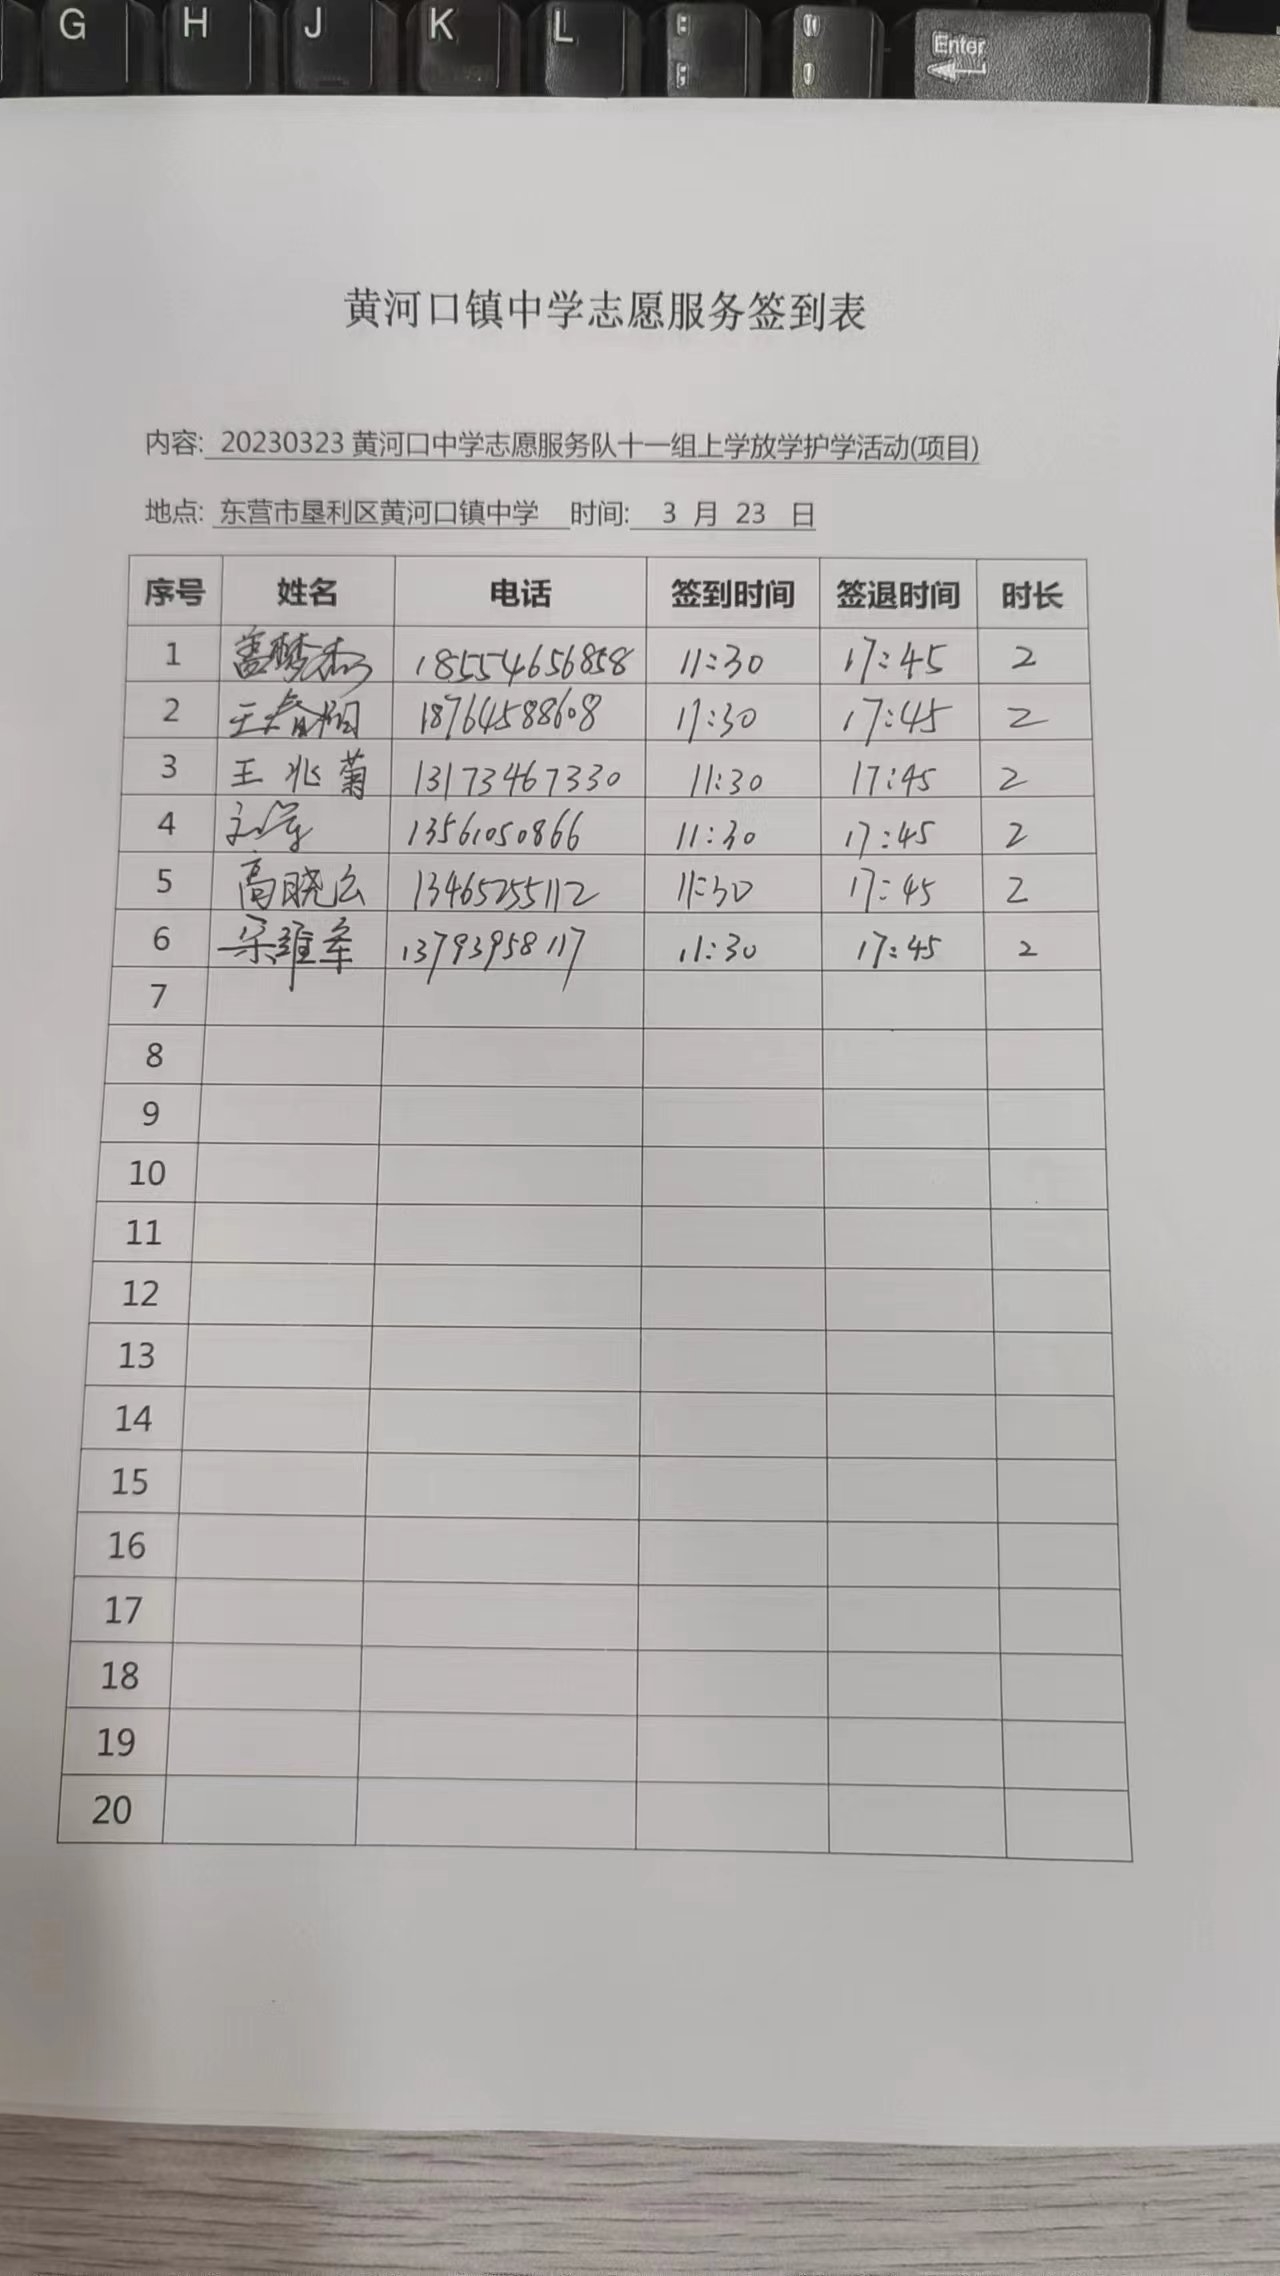 G H J K L : ; " ' Enter
黄河口镇中学志愿服务签到表
内容: 20230323黄河口中学志愿服务队十一组上学放学护学活动(项目)
地点: 东营市垦利区黄河口镇中学 时间: 3 月 23 日
序号 姓名 电话 签到时间 签退时间 时长
1 盖梦杰 18554656858 11:30 17:45 2
2 王春梅 18764588608 11:30 17:45 2
3 王兆菊 13173467330 11:30 17:45 2
4 13561050866 11:30 17:45 2
5 高晓云 13465255112 11:30 17:45 2
6 宋维军 13793958117 11:30 17:45 2
7
8
9
10
11
12
13
14
15
16
17
18
19
20